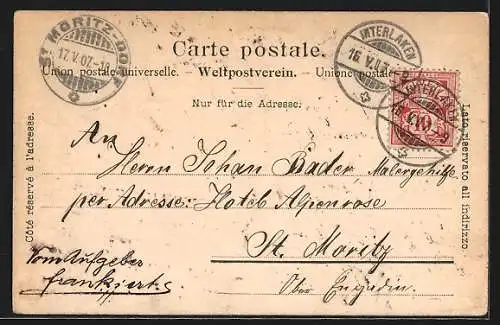 ST. MORITZ-DORF
17.V.07.-18
INTERLAKEN
16.V.07.
Carte postale.
Union postale universelle. – Weltpostverein. – Unione postale
Nur für die Adresse.
Côté réservé à l'adresse.
Lato riservato all indirizzo.
INTERLAKEN
10
An
Herrn Johan Bader Malergehilfe
per Adresse: Hotel Alpenrose
St. Moritz
Ober Engadin.
Vom Aufgeber
frankiert